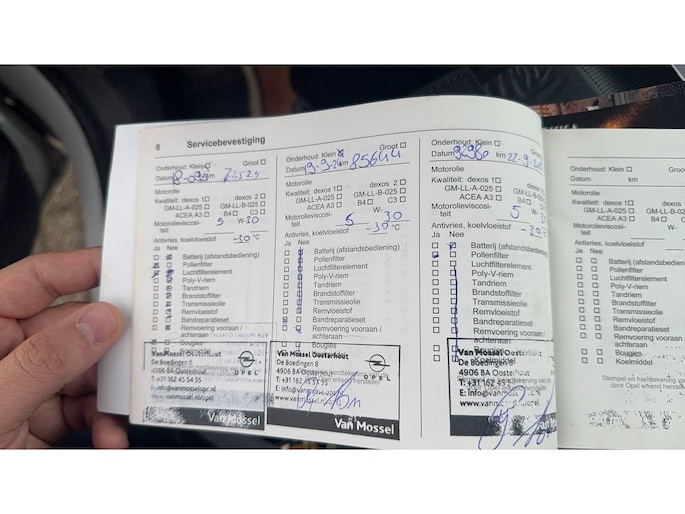 8 Servicebevestiging
Onderhoud: Klein Groot
Datum km
Motorolie
Kwaliteit: dexos 1 dexos 2
GM-LL-A-025 GM-LL-B-025
ACEA A3 B4 C3
Motorolieviscosi- 5 W-30
teit
Antivries, koelvloeistof -30 °C
Ja Nee
Batterij (afstandsbediening)
Pollenfilter
Luchtfilterelement
Poly-V-riem
Tandriem
Brandstoffilter
Transmissieolie
Remvloeistof
Bandreparatieset
Remvoering vooraan /
achteraan
Bougies
Van Mossel Oosterhout
De Boedingen
4906 BA Oosterhout
T: +31 162 45 54 55
E: info@vanmosselopel.nl
www.vanmossel.nl/opel
OPEL
Van Mossel
Onderhoud: Klein Groot
Datum 19-9-24 km 85644
Motorolie
Kwaliteit: dexos 1 dexos 2
GM-LL-A-025 GM-LL-B-025
ACEA A3 B4 C3
Motorolieviscosi- 5 W-30
teit
Antivries, koelvloeistof -30 °C
Ja Nee
Batterij (afstandsbediening)
Pollenfilter
Luchtfilterelement
Poly-V-riem
Tandriem
Brandstoffilter
Transmissieolie
Remvloeistof
Bandreparatieset
Remvoering vooraan /
achteraan
Van Mossel Oosterhout
De Boedingen 8
4906 BA Oosterhout
T: +31 162 45 54 55
OPEL
Van Mossel
Onderhoud: Klein Groot
Datum km 22-9-
Motorolie
Kwaliteit: dexos 1 dexos 2
GM-LL-A-025 GM-LL-B-025
ACEA A3 B4 C3
Motorolieviscosi- 5 W-
teit
Antivries, koelvloeistof
Ja Nee
Batterij (afstandsbediening)
Pollenfilter
Luchtfilterelement
Poly-V-riem
Tandriem
Brandstoffilter
Transmissieolie
Remvloeistof
Bandreparatieset
Remvoering vooraan /
achteraan
Koelmiddel
Van Mossel Oosterhout
De Boedingen 8
4906 BA Oosterhout
T: +31 162 45
E: info@vanmos
www.vanmos
Van Mossel
Onderhoud: Klein Groot
Datum km
Motorolie
Kwaliteit: dexos 1 dexos
GM-LL-A-025 GM-LL-B-02
ACEA A3 B4 C
Motorolieviscosi- W-
teit
Antivries, koelvloeistof
Ja Nee
Batterij (afstandsbedie
Pollenfilter
Luchtfilterelement
Poly-V-riem
Tandriem
Brandstoffilter
Transmissieolie
Remvloeistof
Bandreparatieset
Remvoering vooraan
achteraan
Bougies
Koelmiddel
Stempel en handtekening van
door Opel erkend herstelle